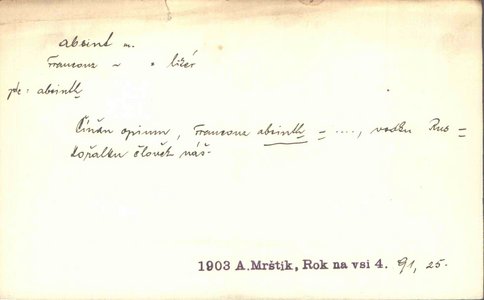 absint m.
Francouz ~ • likér
jde: absinth
Číňan opium, Francouz absinth = ...., vodku Rus =
kořalku člověk náš.
1903 A.Mrštík, Rok na vsi 4. 91, 25.